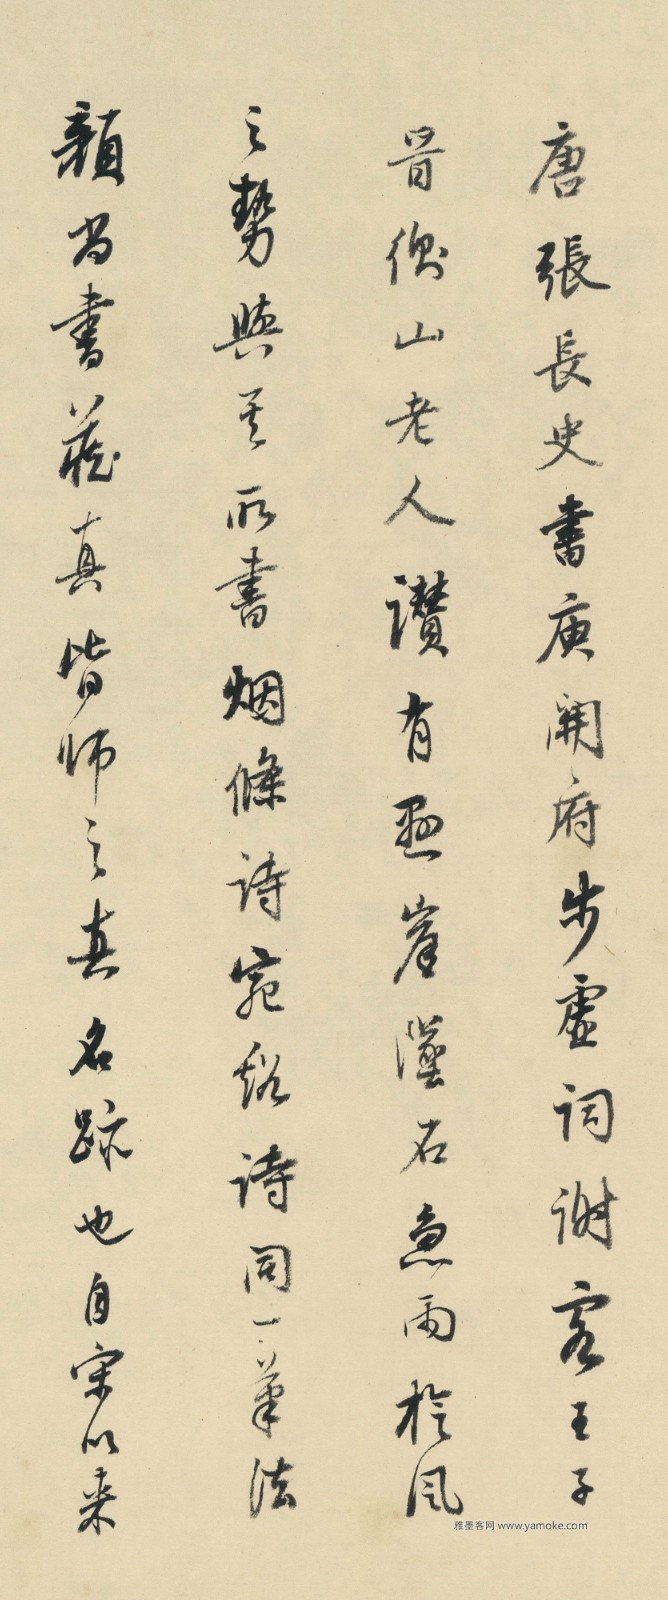 唐張長史書庾開府步虛詞謝客王子
晉衡山老人讚有懸崖墜石急雨旋風
之勢與其所書烟條詩宛谿詩同一筆法
顏尚書藏真皆師之真名跡也自宋以來
雅墨客网 www.yamoke.com